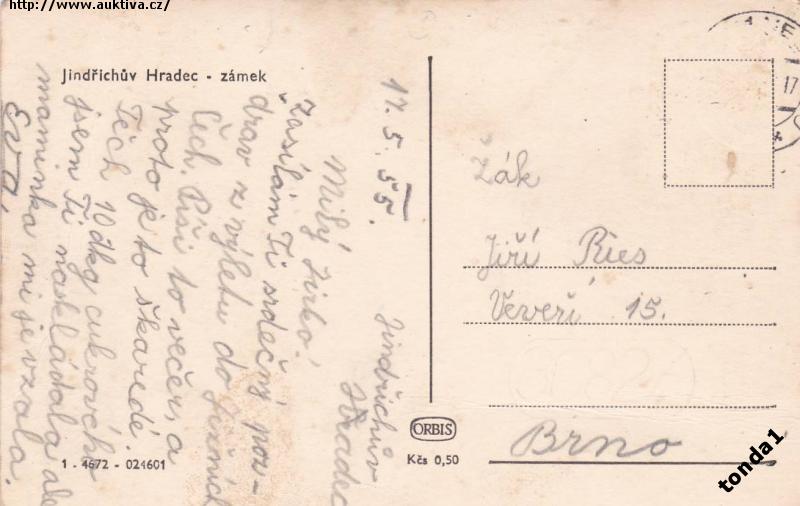 http://www.auktiva.cz/
Jindřichův Hradec - zámek
17. 5. 55.
Jindřichův
Hradec
Milý Jirko!
Zasílám Ti srdečný poz-
drav z výletu do Jižních
Čech. Píši to večer, a
proto je to škaredé.
Těch 10 dkg cukrového
jsem Ti naskládala ale
maminka mi je vzala.
Eva.
1 - 4672 - 024601
ORBIS
Kčs 0,50
17
Žák
Jiří Ries
Veveří 15.
Brno
tonda1